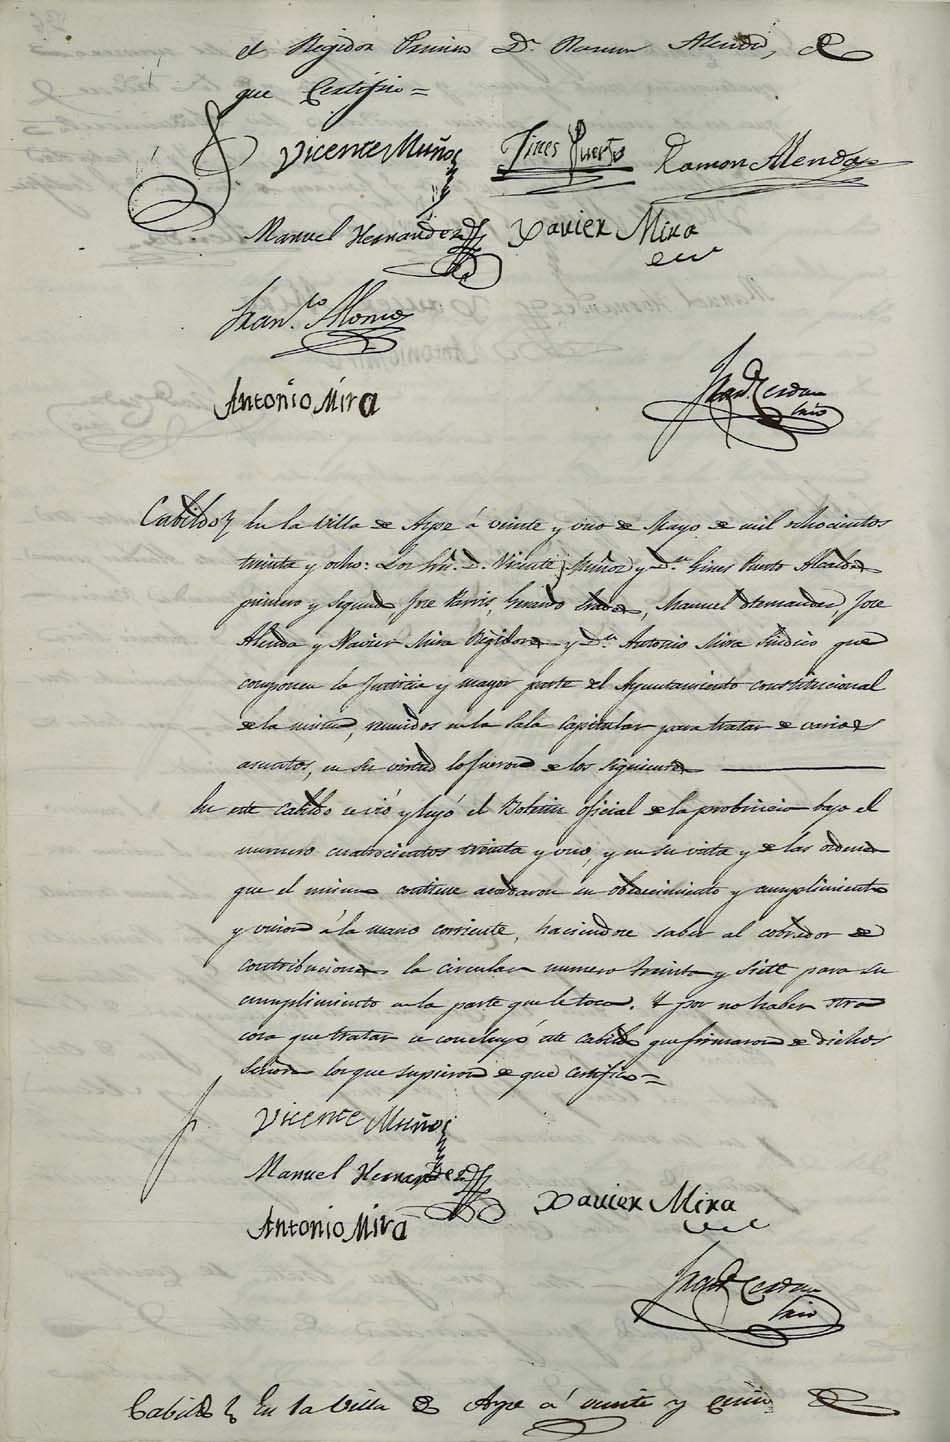 el Regidor Primero Dn. Ramon Alenda, de
que Certifico =
Vicente Muñoz Gines Puerto Ramon Alenda
Manuel Hernandez Xavier Mira
Fran.co Alonso
Antonio Mira
Cerdan
Srio
Cabildo En la Villa de Aspe á veinte y uno de Mayo de mil ochocientos
treinta y ocho: Los Sres. D. Vicente Muñoz y Dn. Gines Puerto Alcaldes
primero y segundo Jose Pavis, Gerardo Manuel Hernandez, Jose
Alenda y Xavier Mira Regidores y Dn. Antonio Mira Sindico que
componen la Justicia y mayor parte del Ayuntamiento constitucional
de la misma, reunidos en la Sala Capitular para tratar de varios
asuntos, en su virtud lo fueron de los siguientes
En este Cabildo se vió y leyó el Boletin oficial de la probincia bajo el
numero cuatrocientos treinta y uno, y en su vista y de las ordenes
que el mismo contiene acordaron su obedecimiento y cumplimiento
y union á la mano corriente, haciendose saber al cobrador de
contribuciones la circular numero treinta y siete para su
cumplimiento en la parte que le toca. Y por no haber otra
cosa que tratar se concluyó este cabildo que firmaron de dichos
Señores los que supieron de que certifico =
Vicente Muñoz
Manuel Hernandez
Xavier Mira
Antonio Mira
Cerdan
Srio
Cabildo En la Villa de Aspe á veinte y cinco de